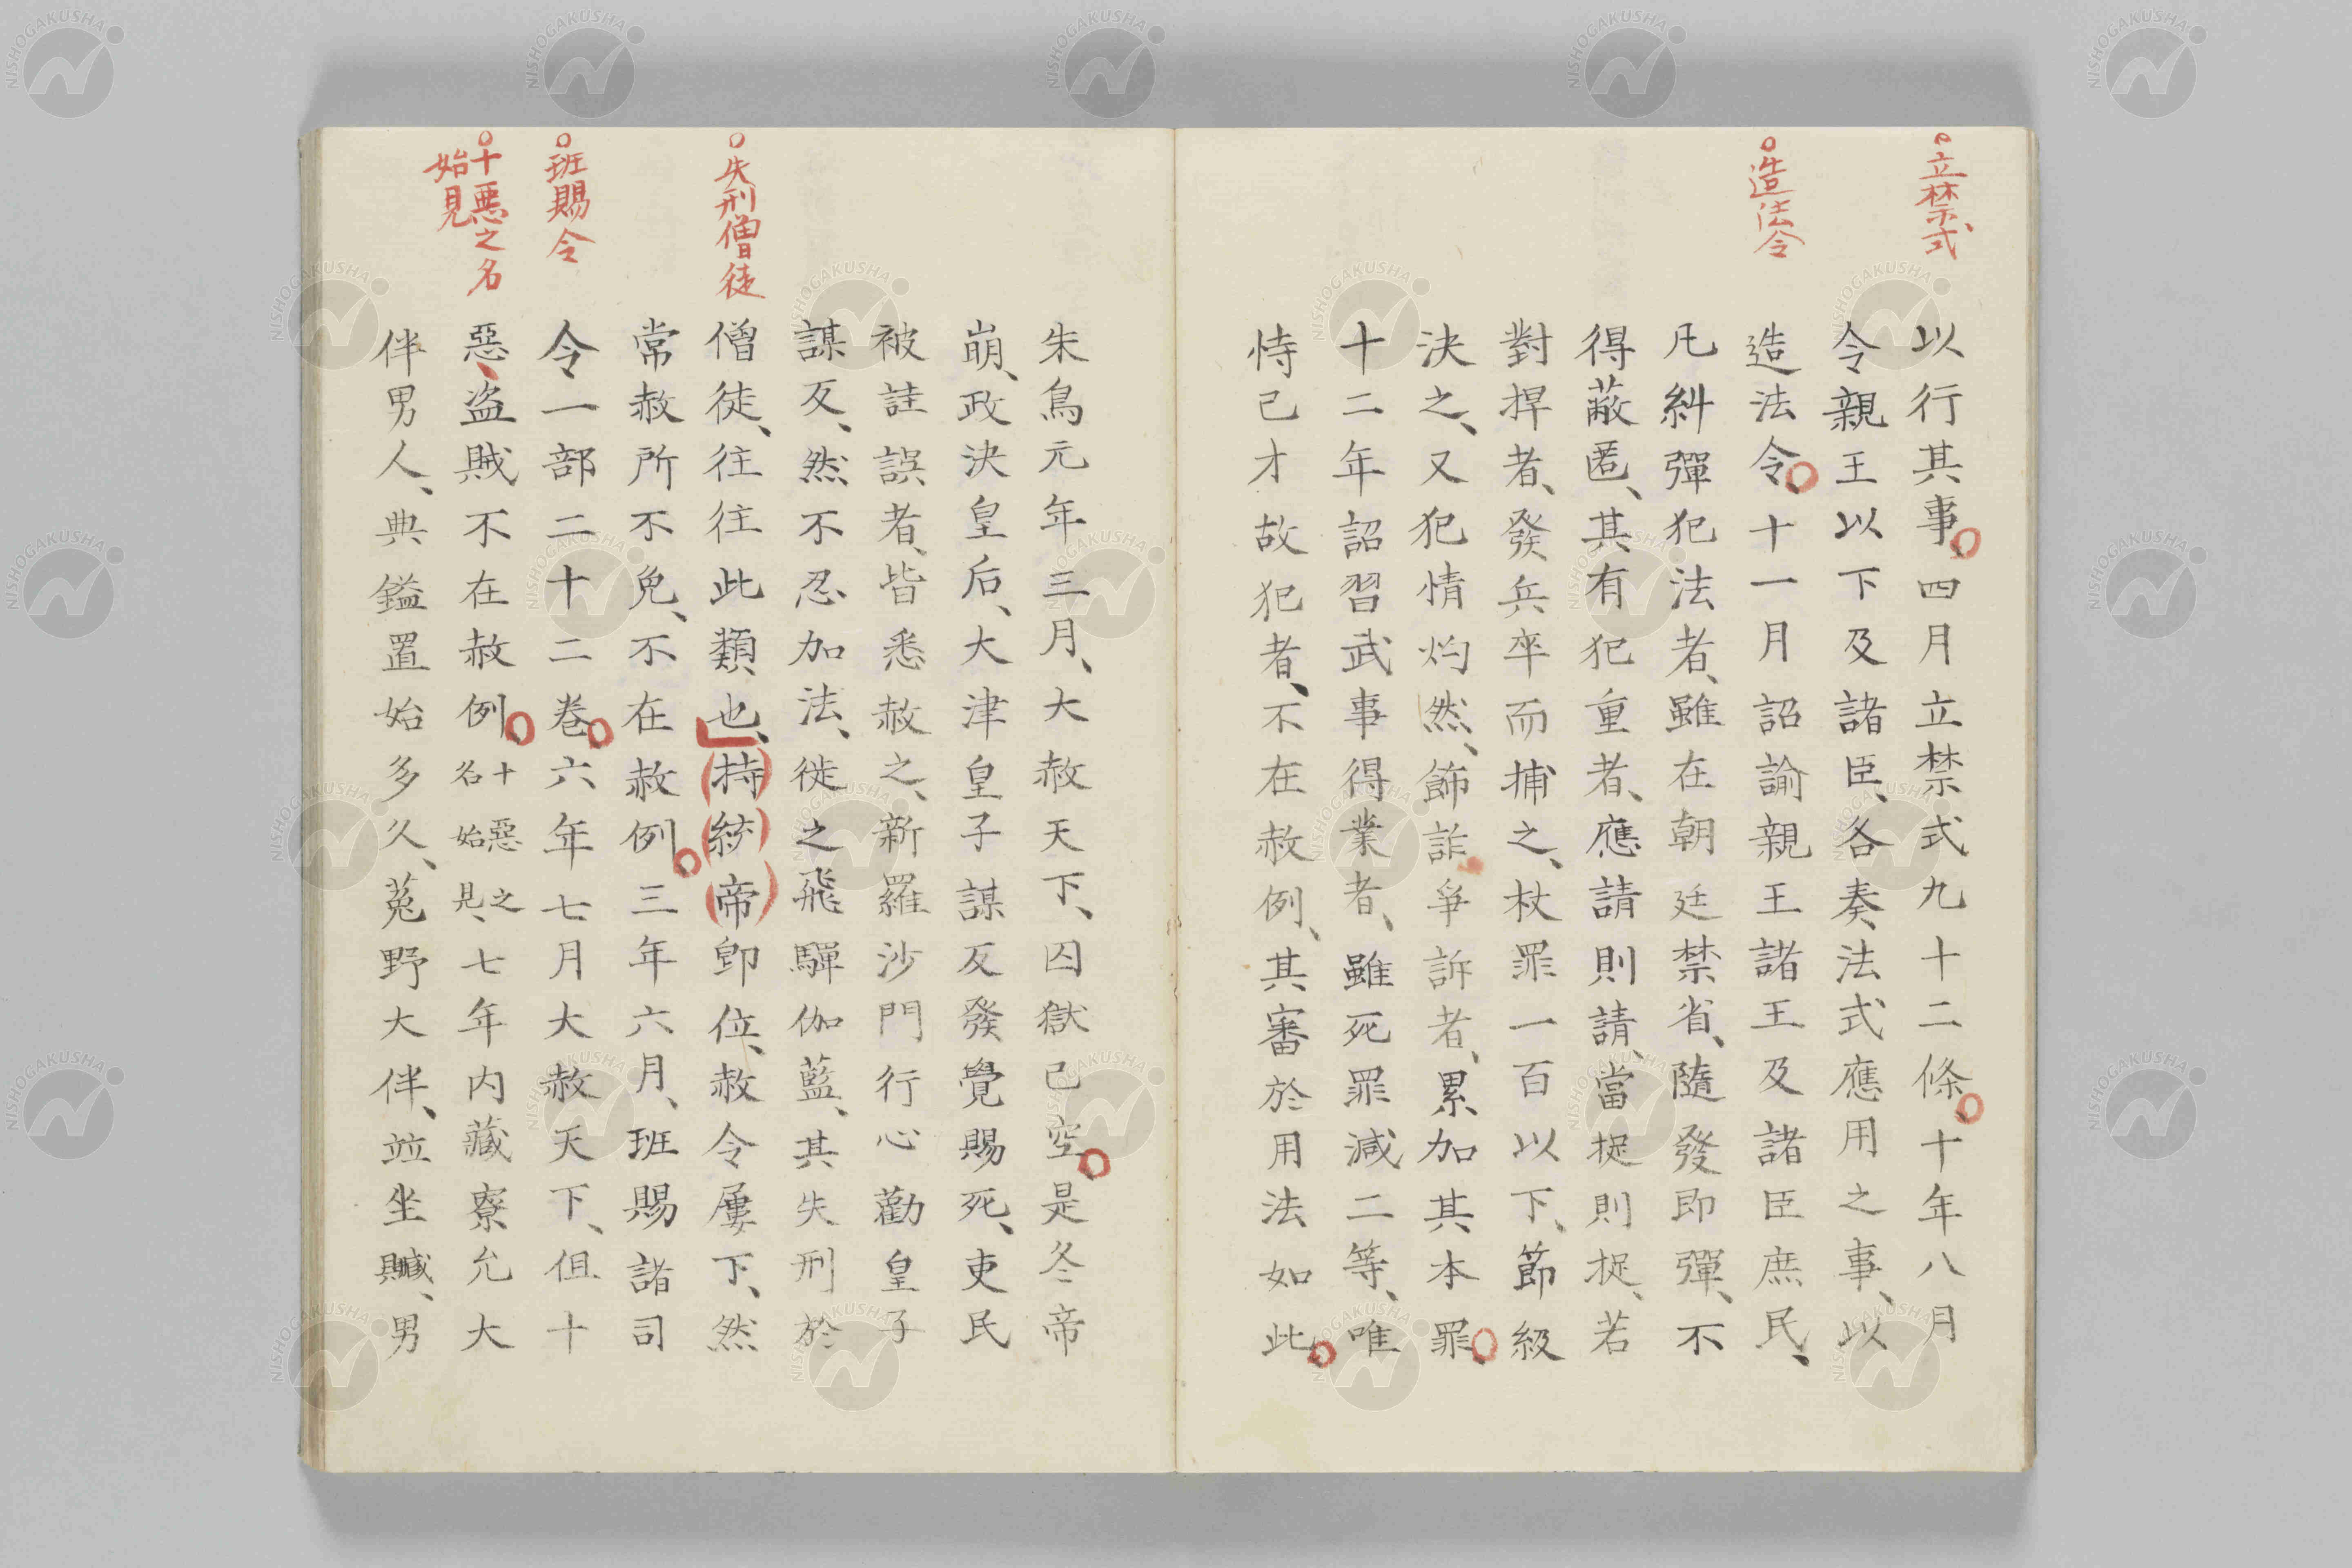 立禁式
以行其事、四月立禁式九十二條、十年八月
令親王以下及諸臣、各奏法式應用之事、以
造法令
造法令、十一月詔諭親王諸王及諸臣庶民、
凡糾彈犯法者、雖在朝廷禁省、隨發即彈、不
得蔽匿、其有犯重者、應請則請、當捉則捉、若
對捍者、發兵卒而捕之、杖罪一百以下、節級
決之、又犯情灼然、飾詐爭訴者、累加其本罪、
十二年詔習武事得業者、雖死罪減二等、唯
恃己才故犯者、不在赦例、其審於用法如此、
朱鳥元年三月、大赦天下、囚獄已空、是冬帝
崩、政決皇后、大津皇子謀反發覺賜死、吏民
被詿誤者、皆悉赦之、新羅沙門行心勸皇子
謀反、然不忍加法、徙之飛驒伽藍、其失刑於
失刑僧徒
僧徒、往往此類也、持統帝卽位、赦令屢下、然
常赦所不免、不在赦例、三年六月、班賜諸司
班賜令
令一部二十二卷、六年七月大赦天下、但十
十惡之名
始見
惡、盗賊不在赦例、十惡之
名始見、七年内藏寮允大
伴男人、典鎰置始多久、菟野大伴、竝坐贓、男